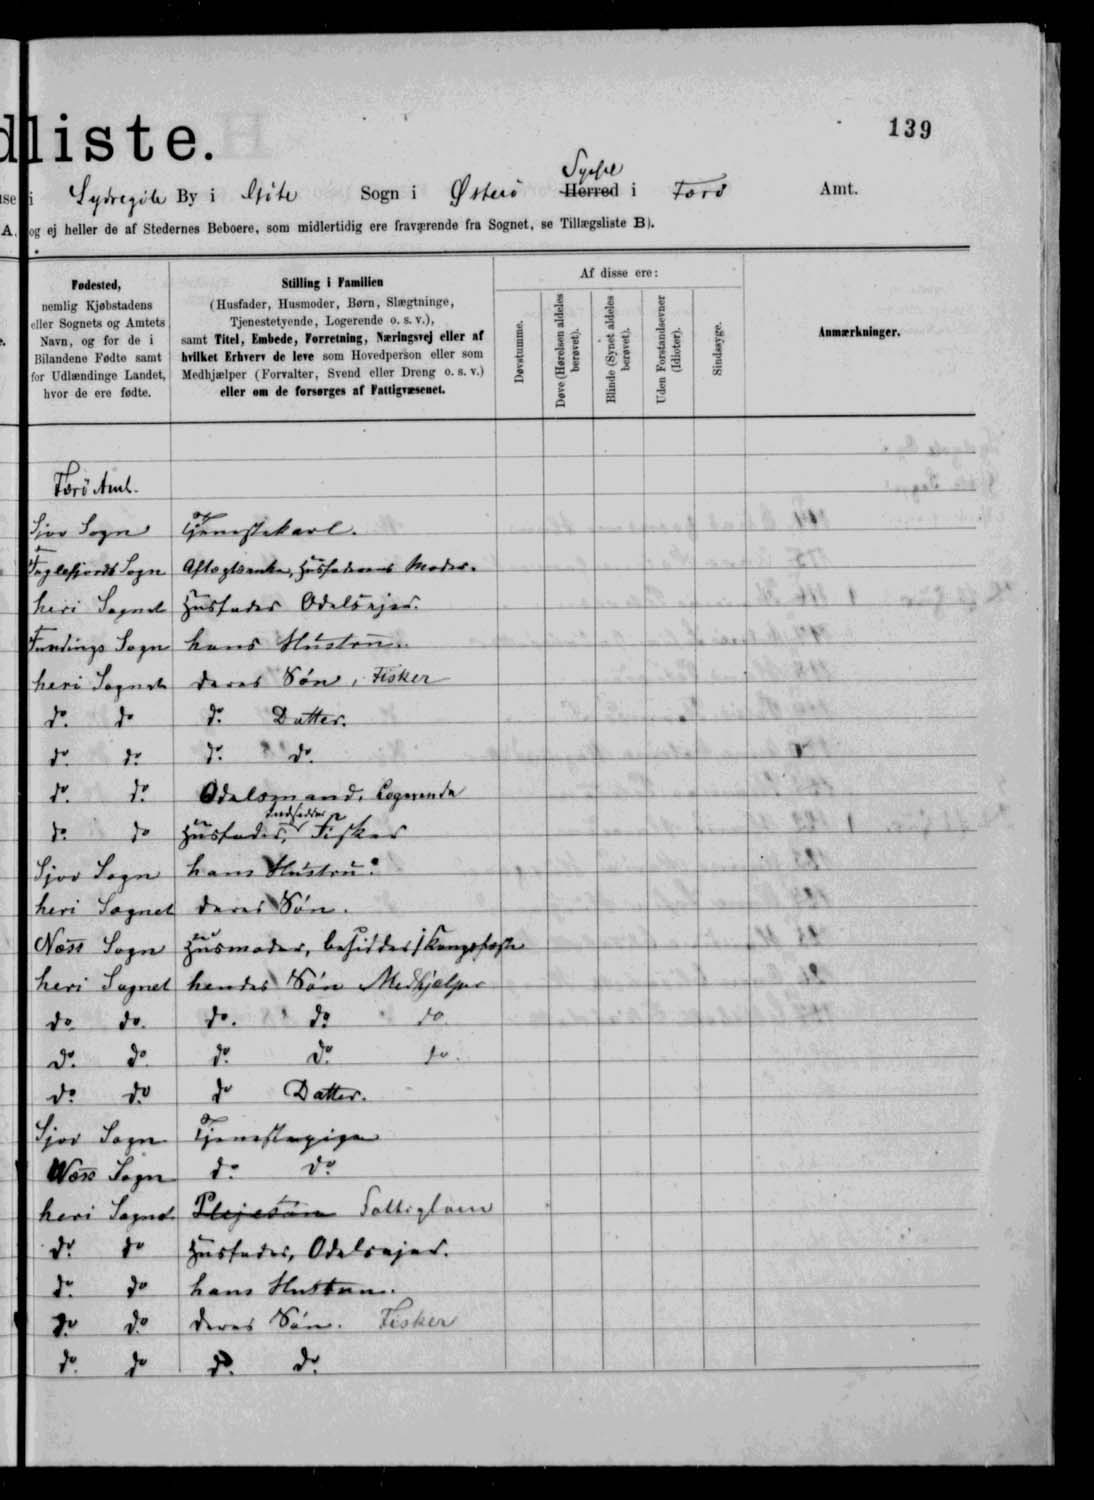 dliste.
139
i Sydregöte By i Göte Sogn i Österö Herred Syssel i Færö Amt.
A. og ej heller de af Stedernes Beboere, som midlertidig ere fraværende fra Sognet, se Tillægsliste B).
Fødested,
nemlig Kjøbstadens
eller Sognets og Amtets
Navn, og for de i
Bilandene Fødte samt
for Udlændinge Landet,
hvor de ere fødte.
Stilling i Familien
(Husfader, Husmoder, Børn, Slægtninge,
Tjenestetyende, Logerende o. s. v.),
samt Titel, Embede, Forretning, Næringsvej eller af
hvilket Erhverv de leve som Hovedperson eller som
Medhjælper (Forvalter, Svend eller Dreng o. s. v.)
eller om de forsørges af Fattigvæsenet.
Af disse ere:
Døvstumme.
Døve (Hørelsen aldeles berøvet).
Blinde (Synet aldeles berøvet).
Uden Forstandsevner (Idioter).
Sindssyge.
Anmærkninger.
Færö Amt.
Sjov Sogn Tjenestekarl.
Fuglefjords Sogn Aftægtsenke, Husfaderens Moder.
heri Sognet Husfader Odelsejer.
Fundings Sogn hans Hustru.
heri Sognet deres Sön, Fisker
do. do do. Datter.
do. do. do. do.
do. do. Odelsmand, Logerende
do. do Husfader, Indsidder Fisker
Sjov Sogn hans Hustru.
heri Sognet deres Sön.
Næss Sogn Husmoder, besidder Kongsfæste
heri Sognet hendes Sön Medhjælper
do. do. do. do. do.
do. do. do. do. do.
do. do. do Datter.
Sjov Sogn Tjenestepige
Næss Sogn do. do.
heri Sognet Plejesön Fattiglem
do. do Husfader, Odelsejer.
do. do hans Hustru.
do. do. deres Sön. Fisker
do. do do. do.